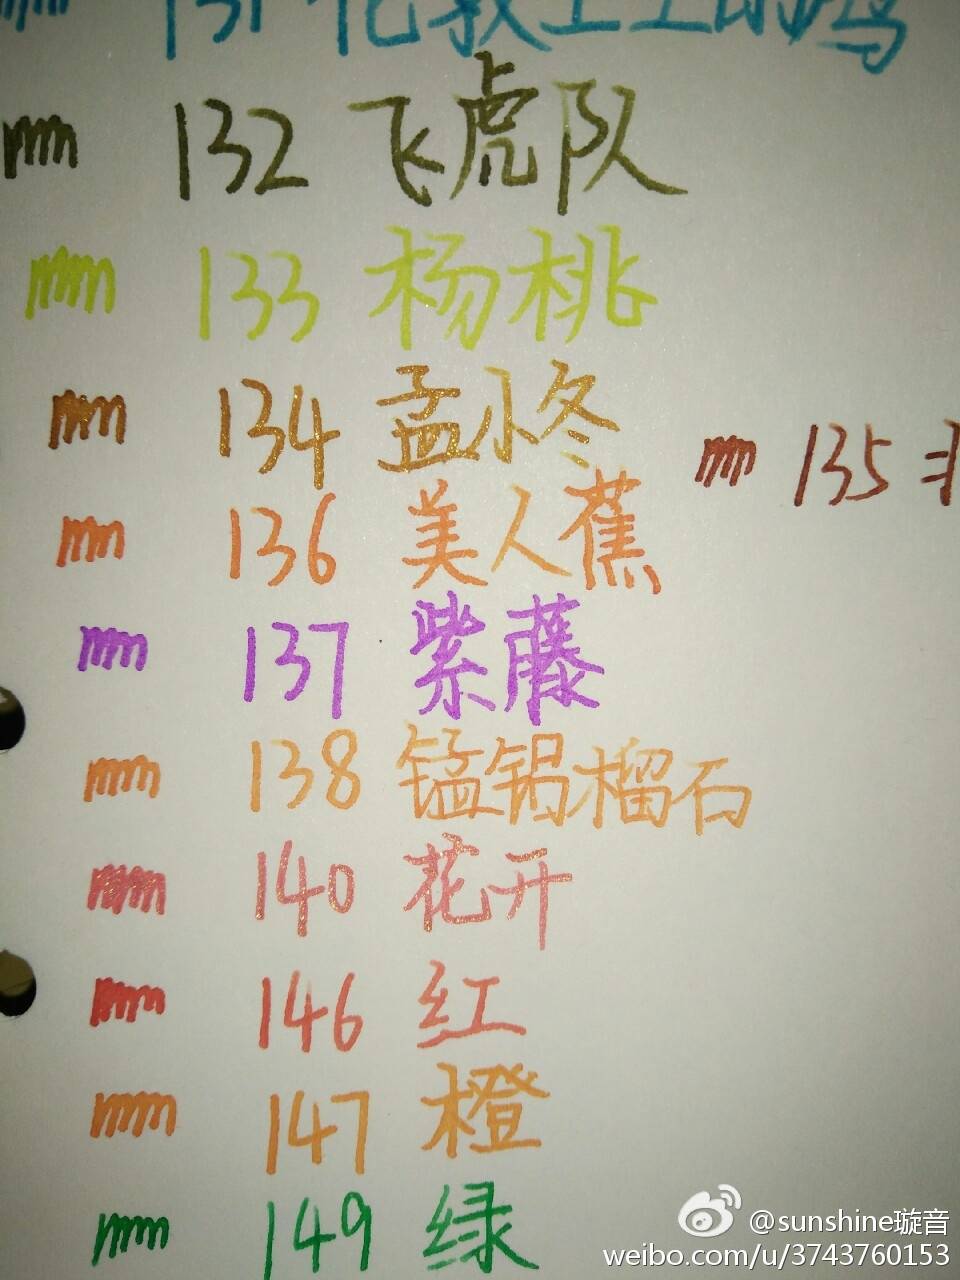 132 飞虎队
133 杨桃
134 孟小冬
135
136 美人蕉
137 紫藤
138 锰铝榴石
140 花开
146 红
147 橙
149 绿
@sunshine璇音
weibo.com/u/3743760153